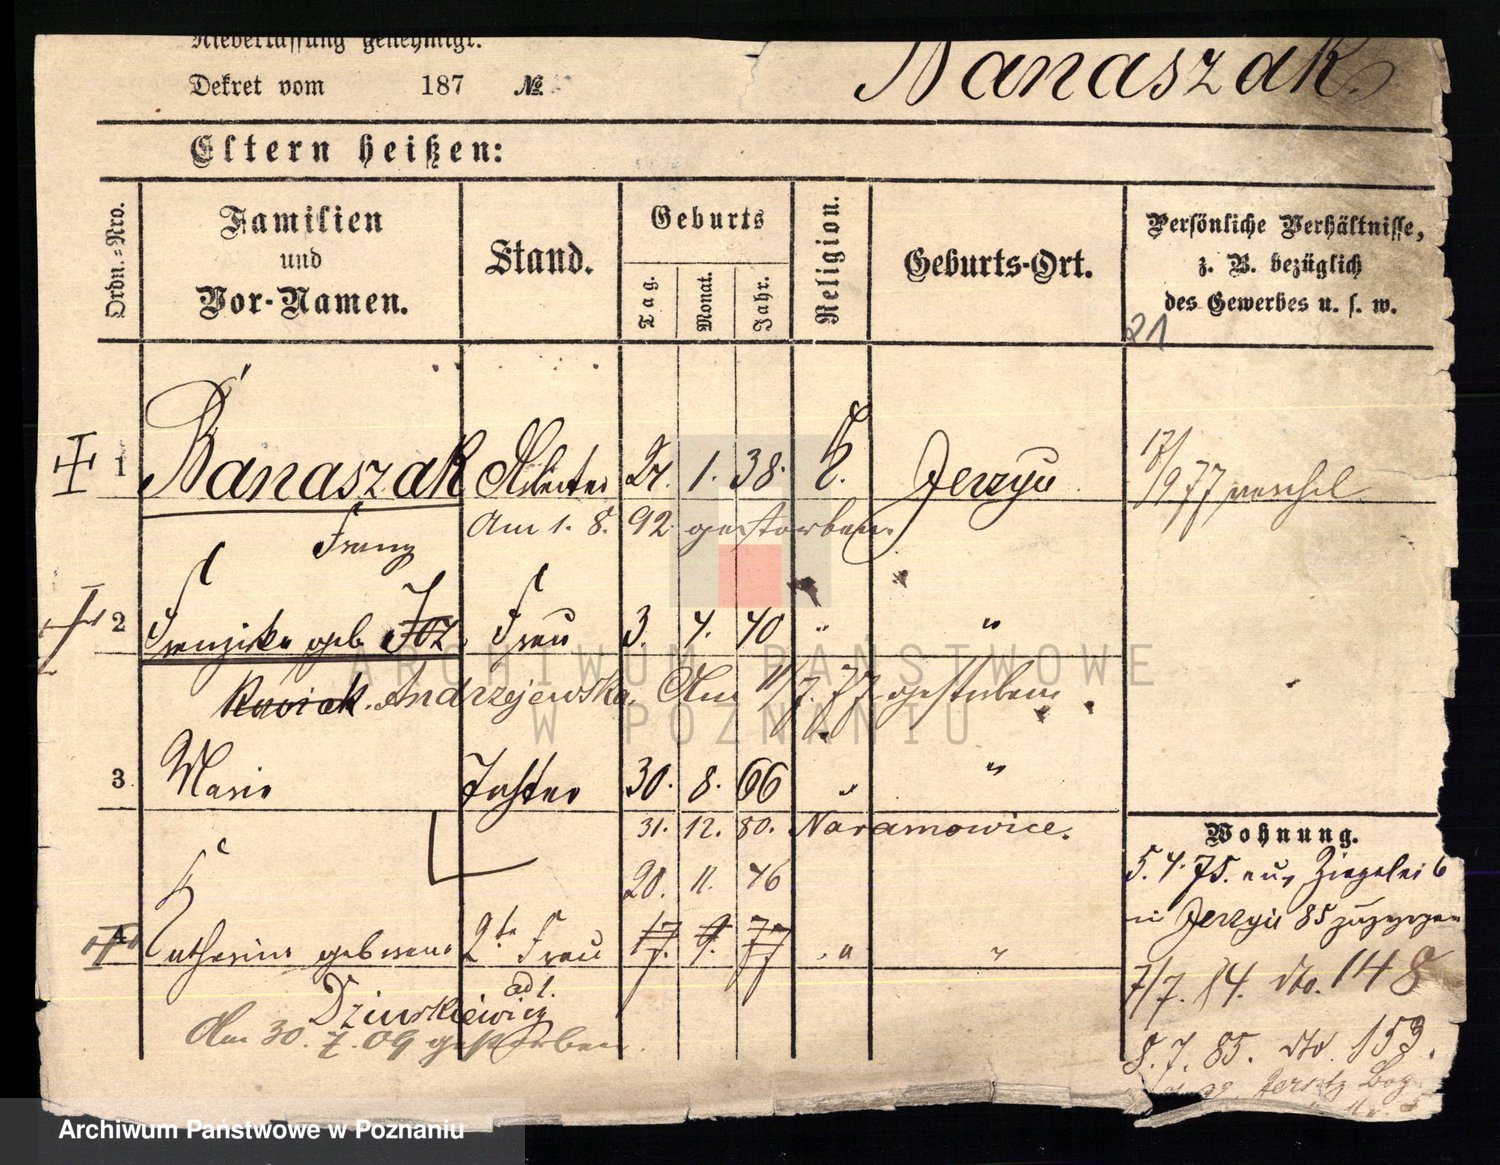 Niederlassung genehmigt.
Dekret vom 187 №
Banaszak.
Eltern heißen:
Ordn.-Nro.
Familien und Vor-Namen.
Stand.
Geburts
Tag.
Monat.
Jahr.
Religion.
Geburts-Ort.
Persönliche Verhältnisse,
z. B. bezüglich
des Gewerbes u. s. w.
21
1 Banaszak Arbeiter 1. 38. K. Jerzyce 17/9 77 
Franz
Am 1. 8. 92 gestorben.
2 Franziska geb. Frau 3. 4. 40 " "
Andrzejewska. Am 11/7. 77 gestorben
3 Marie Tochter 30. 8. 66 " "
31. 12. 80. Naramowice.
Wohnung.
20. 11. 46
4 Katharina geborene 2te Frau 17. 9. 77 " "
ad 1.
Dziurkiewicz
Am 30. 7. 09 gestorben.
5. 4. 75. aus Ziegelei 6
in 85 zugezogen
7/7. 84. dto. 148
8. 7. 85. dto. 153.
Jersitz
ARCHIWUM PAŃSTWOWE
W POZNANIU
Archiwum Państwowe w Poznaniu